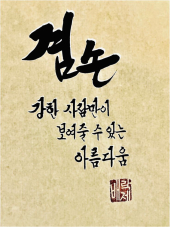 겸손
강한 사람만이
보여줄 수 있는
아름다움